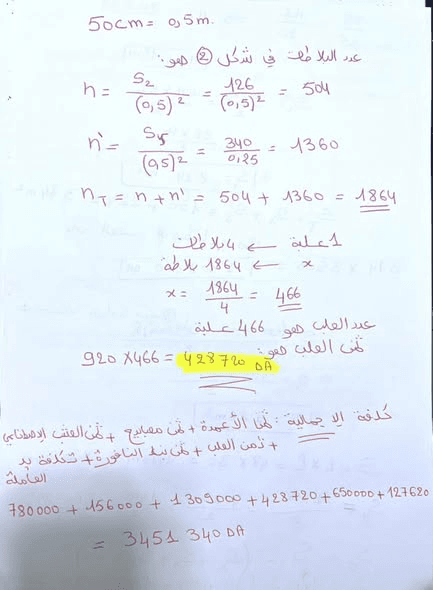 50cm = 0,5m.
عدد البلاطات في شكل ② هو:
n = S₂/(0,5)² = 126/(0,5)² = 504
n' = S₅/(0,5)² = 340/0,25 = 1360
n_T = n + n' = 504 + 1360 = 1864
1 علبة ← 4 بلاطات
x ← 1864 بلاطة
x = 1864/4 = 466
عدد العلب هو 466 علبة
ثمن العلب هو:
920 × 466 = 428720 DA
كلفة الإجمالية: ثمن الأعمدة + ثمن مصابيح + ثمن العشب الاصطناعي
+ ثمن العلب + ثمن بناء النافورة + تكلفة يد
العاملة
780000 + 156000 + 1309000 + 428720 + 650000 + 127620
= 3451 340 DA